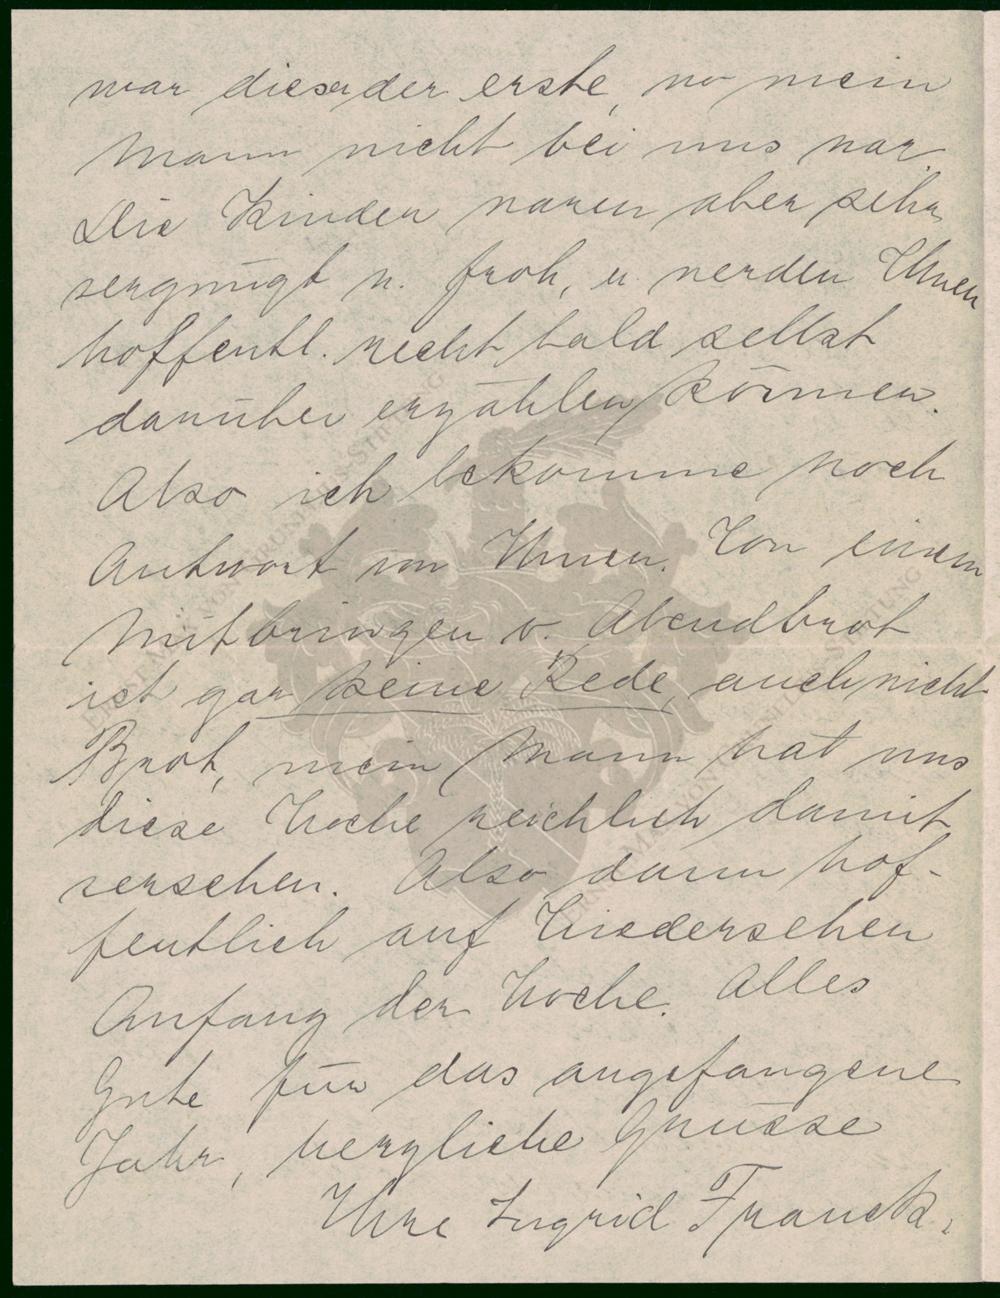 war dieser der erste, wo mein
Mann nicht bei uns war.
Die Kinder waren aber sehr
vergnügt u. froh, u. werden Ihnen
hoffentl. recht bald selbst
darüber erzählen können.
Also ich bekomme noch
Antwort von Ihnen. Von einem
Mitbringen v. Abendbrot
ist gar keine Rede, auch nicht
Brot, mein Mann hat uns
diese Woche reichlich damit
versehen. Also dann hof-
fentlich auf Wiedersehen
Anfang der Woche. Alles
Gute für das angefangene
Jahr, herzliche Grüsse
Ihre Ingrid Franck.
ERNST MAX VON GRUNELIUS-STIFTUNG
ERNST MAX VON GRUNELIUS-STIFTUNG